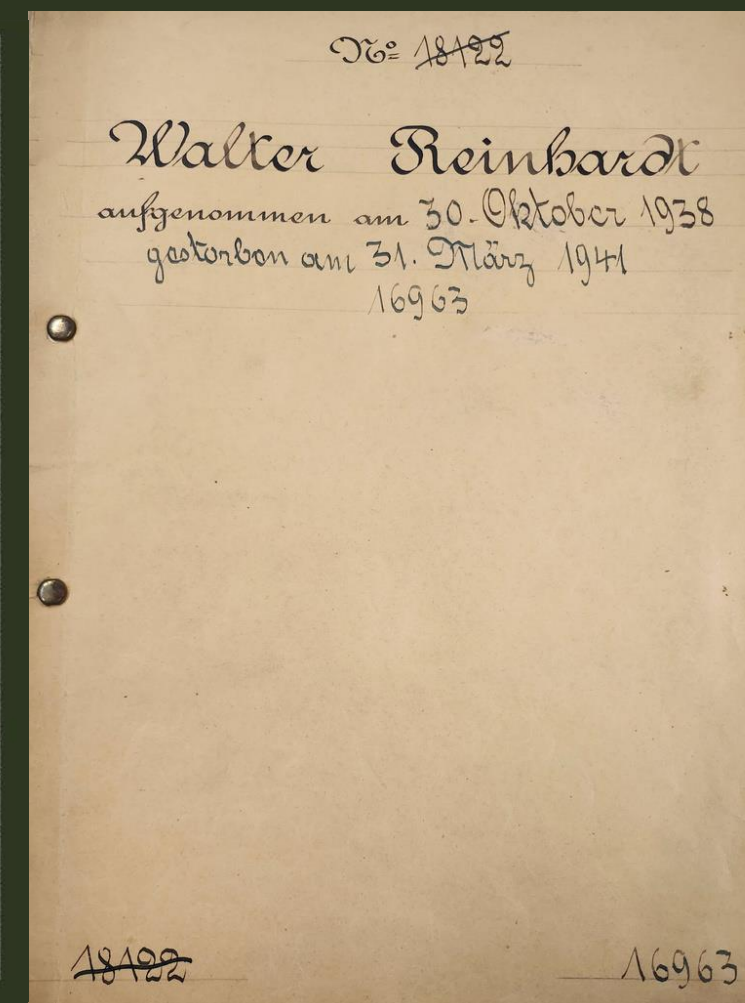 Nº 18122
Walter Reinhardt
aufgenommen am 30. Oktober 1938
gestorben am 31. März 1941
16963
18122
16963